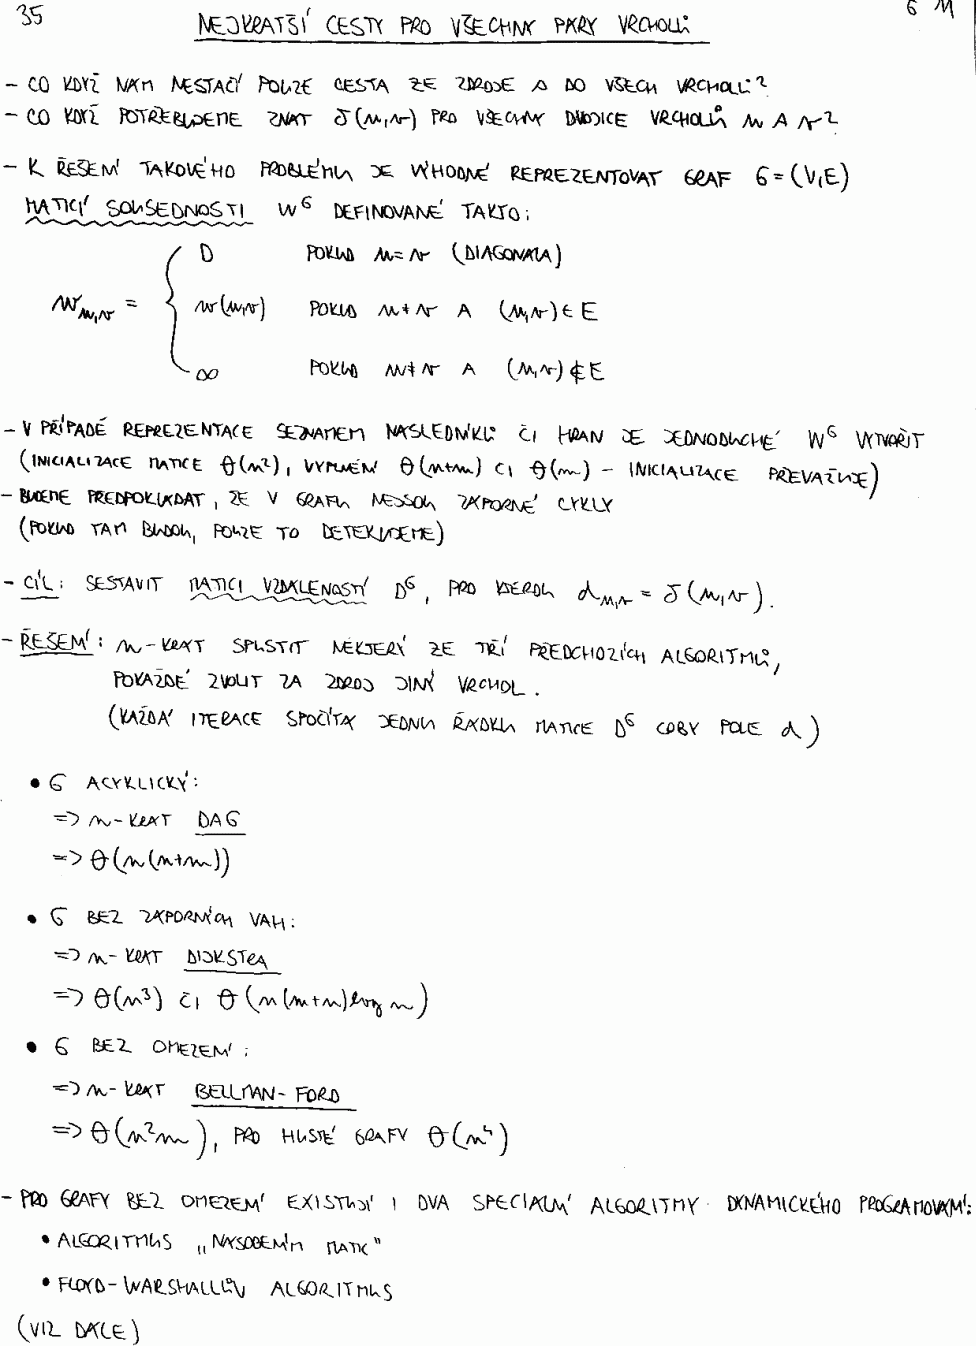 35
6 M
NEJKRATŠÍ CESTY PRO VŠECHNY PÁRY VRCHOLŮ
- CO KDYŽ NÁM NESTAČÍ POUZE CESTA ZE ZDROJE A DO VŠECH VRCHOLŮ?
- CO KDYŽ POTŘEBUJEME ZNÁT δ(u,v) PRO VŠECHNY DVOJICE VRCHOLŮ u A v?
- K ŘEŠENÍ TAKOVÉHO PROBLÉMU JE VÝHODNÉ REPREZENTOVAT GRAF G=(V,E)
MATICÍ SOUSEDNOSTI W^G DEFINOVANÉ TAKTO:
0 POKUD u=v (DIAGONÁLA)
w_{u,v} = { w(u,v) POKUD u≠v A (u,v)∈E
∞ POKUD u≠v A (u,v)∉E
- V PŘÍPADĚ REPREZENTACE SEZNAMEM NÁSLEDNÍKŮ ČI HRAN JE JEDNODUCHÉ W^G VYTVOŘIT
(INICIALIZACE MATICE θ(n²), VYPLNĚNÍ θ(n+m) ČI θ(m) - INICIALIZACE PŘEVAŽUJE)
- BUDEME PŘEDPOKLÁDAT, ŽE V GRAFU NEJSOU ZÁPORNÉ CYKLY
(POKUD TAM BUDOU, POUZE TO DETEKUJEME)
- CÍL: SESTAVIT MATICI VZDÁLENOSTÍ D^G, PRO KTEROU d_{u,v} = δ(u,v).
- ŘEŠENÍ: n-KRÁT SPUSTIT NĚKTERÝ ZE TŘÍ PŘEDCHOZÍCH ALGORITMŮ,
POKAŽDÉ ZVOLIT ZA ZDROJ JINÝ VRCHOL.
(KAŽDÁ ITERACE SPOČÍTÁ JEDNU ŘÁDKU MATICE D^G COBY POLE d)
• G ACYKLICKÝ:
=> n-KRÁT DAG
=> θ(n(n+m))
• G BEZ ZÁPORNÝCH VAH:
=> n-KRÁT DIJKSTRA
=> θ(n³) ČI θ(n(m+n)log n)
• G BEZ OMEZENÍ:
=> n-KRÁT BELLMAN-FORD
=> θ(n²m), PRO HUSTÉ GRAFY θ(n⁴)
- PRO GRAFY BEZ OMEZENÍ EXISTUJÍ I DVA SPECIÁLNÍ ALGORITMY DYNAMICKÉHO PROGRAMOVÁNÍ:
• ALGORITMUS „NÁSOBENÍM MATIC"
• FLOYD-WARSHALLŮV ALGORITMUS
(VIZ DÁLE)